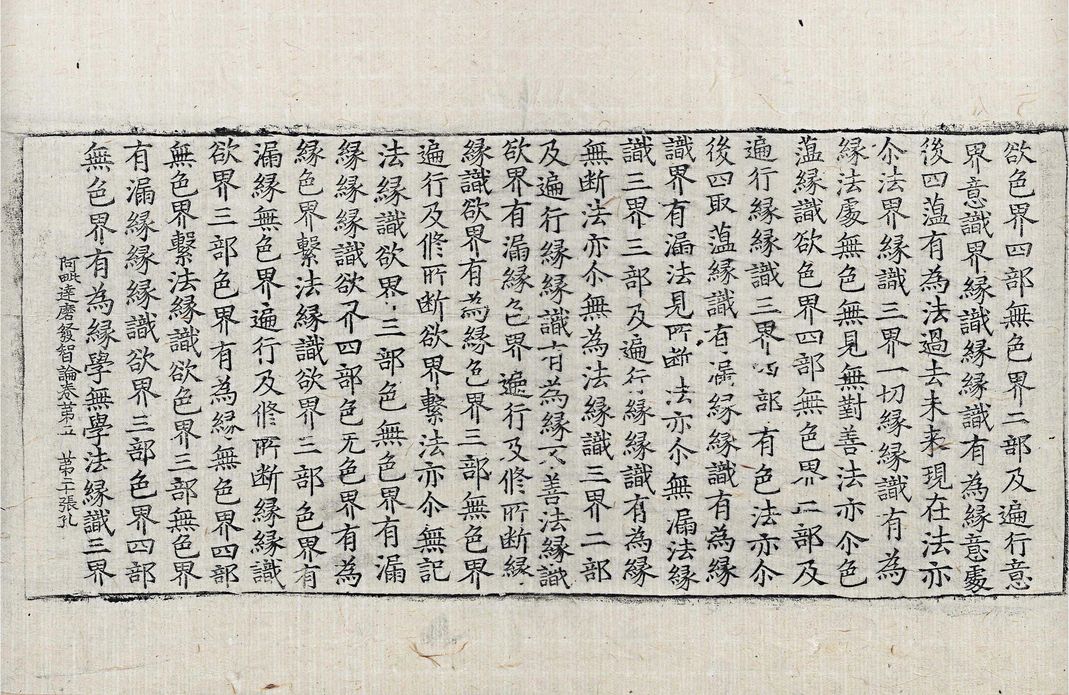 欲色界四部無色界二部及遍行意
界意識界縁識縁縁識有為縁意䖏
後四蕰有為法過去未来現在法亦
尒法界縁識三界一切縁縁識有為
縁法處無色無見無對善法亦尒色
蕰縁識欲色界四部無色界二部及
遍行縁縁識三界四部有色法亦尒
後四取蕰縁識有漏縁縁識有為縁
識界有漏法見所断法亦尒無漏法縁
識三界三部及遍行縁縁識有為縁
無断法亦尒無為法縁識三界二部
及遍行縁縁識有為縁不善法縁識
欲界有漏縁色界遍行及修所断縁
縁識欲界有為縁色界三部無色界
遍行及修所断欲界繋法亦尒無記
法縁識欲界三部色無色界有漏
縁縁縁識欲界四部色无色界有為
縁色界繋法縁識欲界三部色界有
漏縁無色界遍行及修所断縁縁識
欲界三部色界有為縁無色界四部
無色界繋法縁識欲色界三部無色界
有漏縁縁縁識欲界三部色界四部
無色界有為縁學無學法縁識三界
阿毗達磨發智論卷第五 第二十張孔